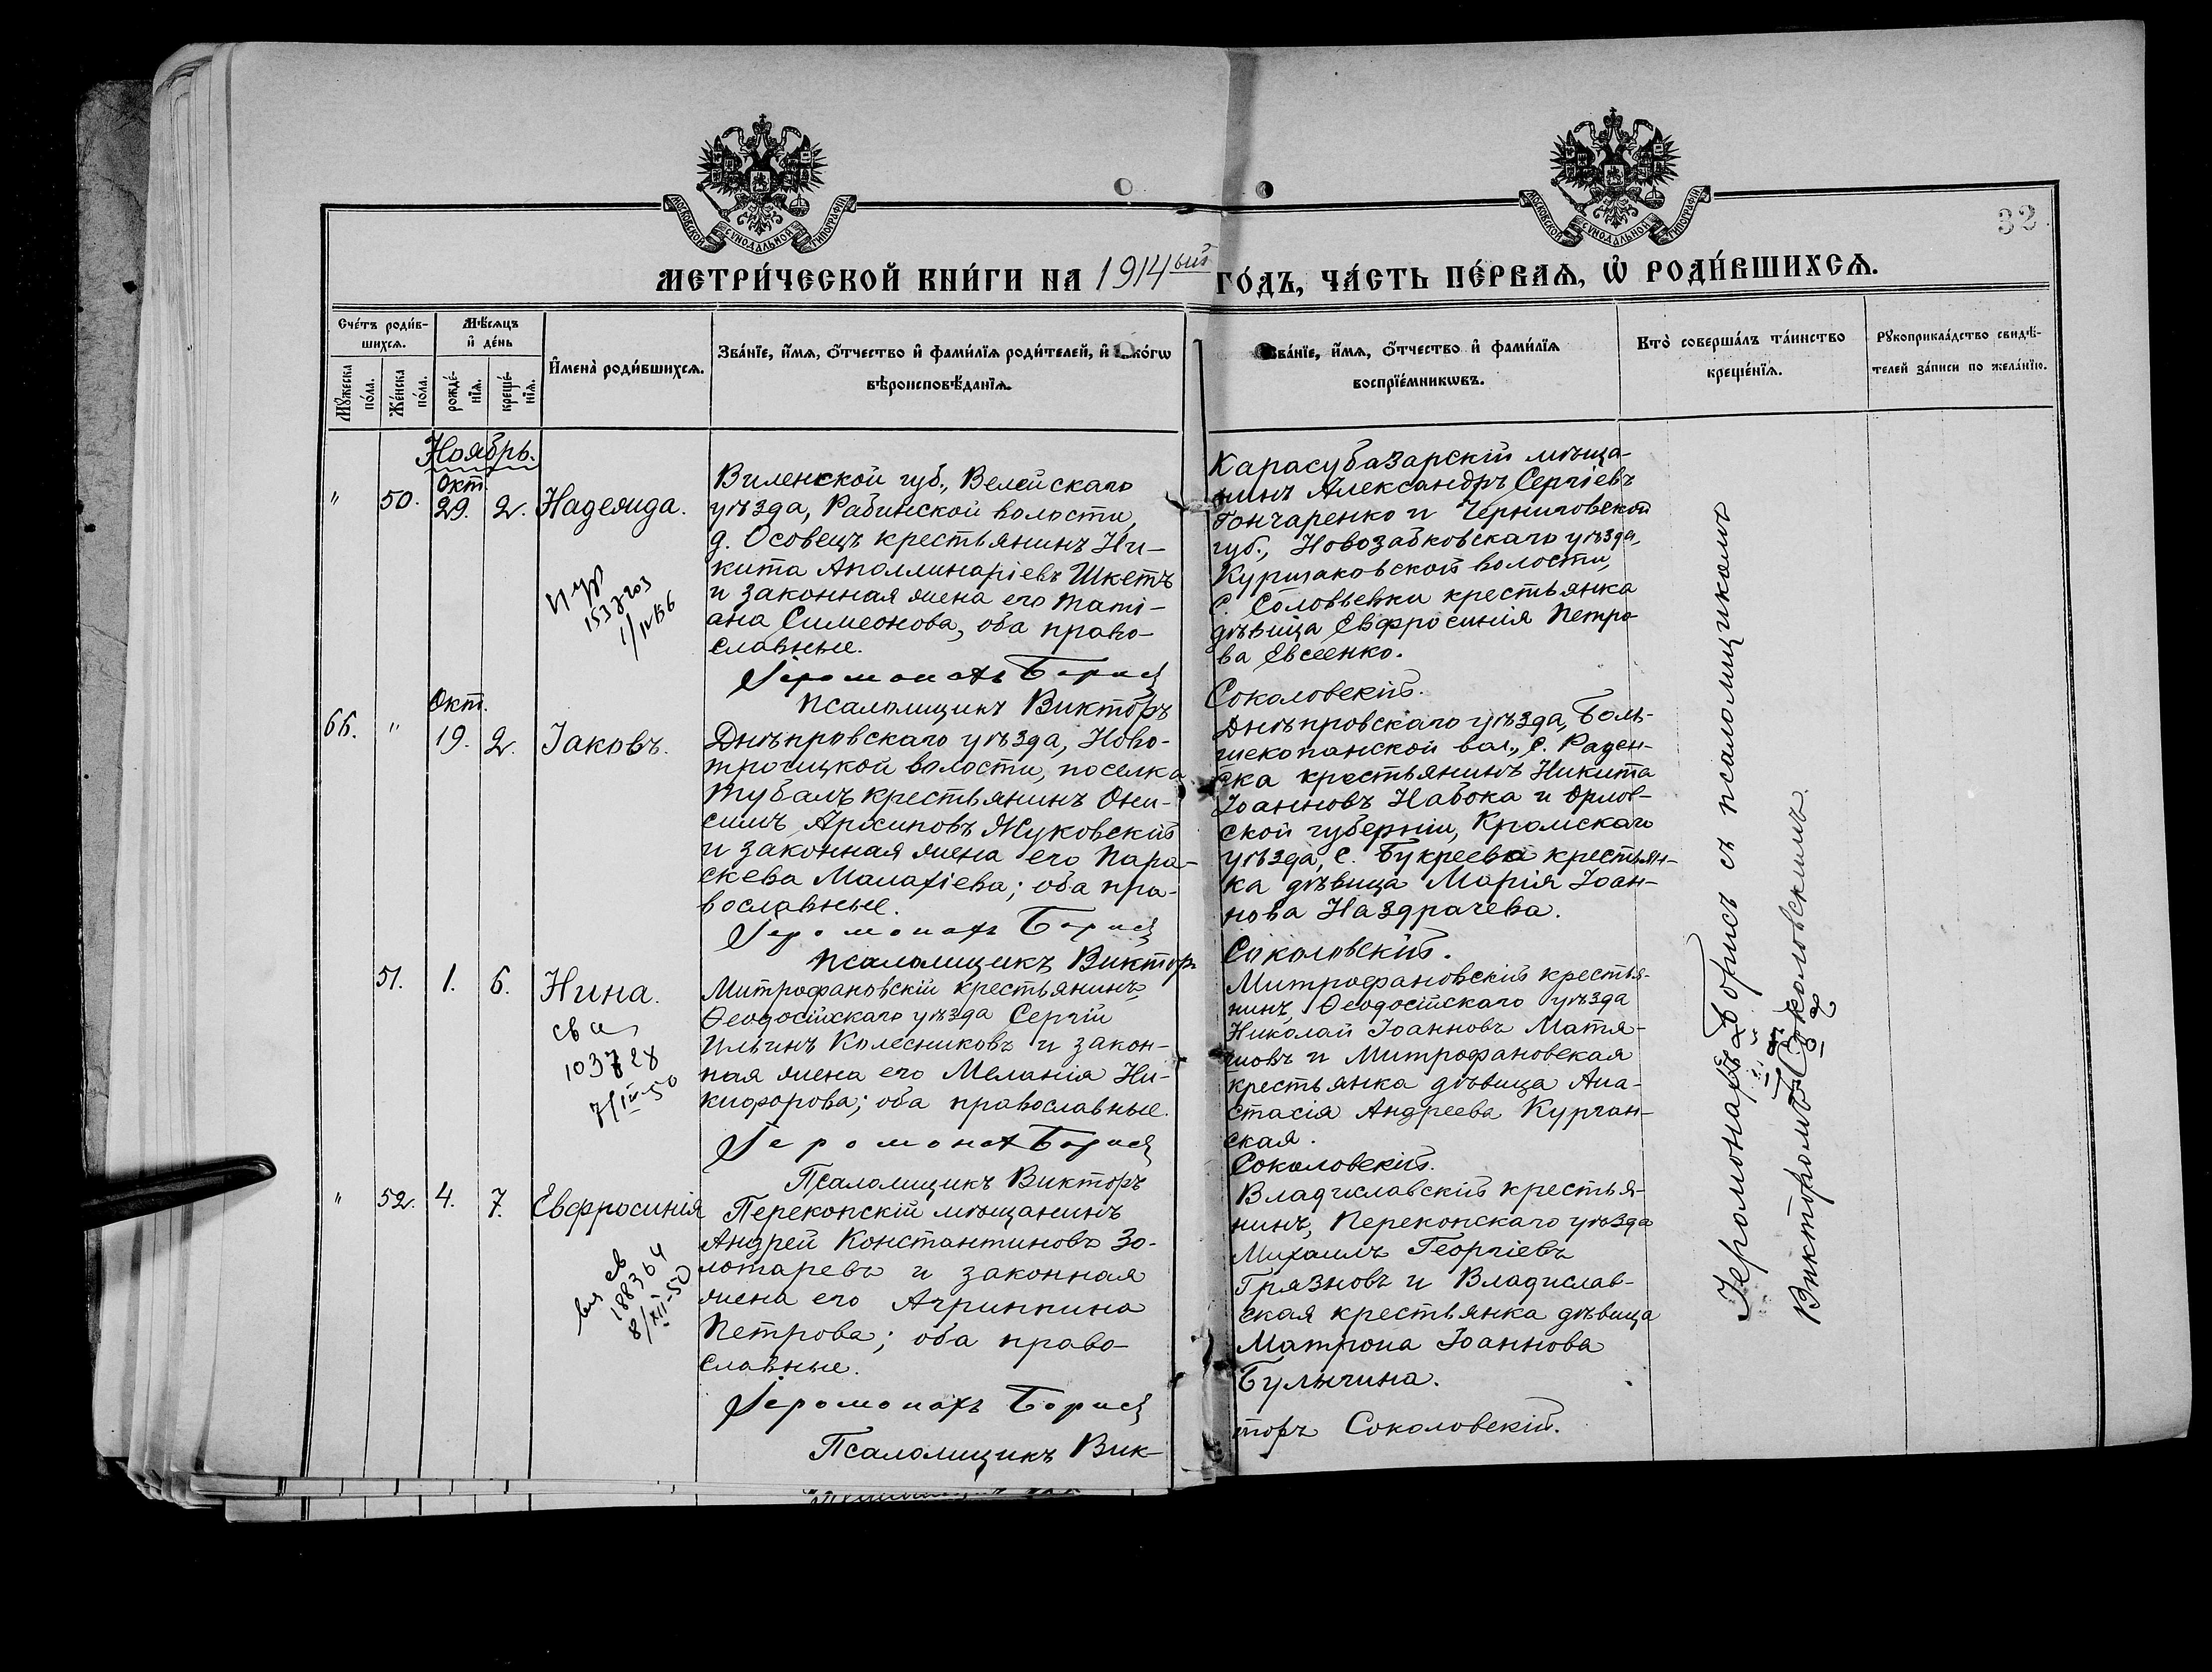 МОСКОВСКОЙ СѴНОДАЛЬНОЙ ТИПОГРАФІИ
МОСКОВСКОЙ СѴНОДАЛЬНОЙ ТИПОГРАФІИ
32.
МЕТРИ́ЧЕСКОЙ КНИ́ГИ НА 1914ый ГО́ДЪ, ЧА́СТЬ ПЕ́РВАѦ, Ѡ҆ РОДИ́ВШИХСѦ.
Сче́тъ роди́в-
шихсѧ.
Мꙋ́жеска по́ла.
Же́нска по́ла.
Мѣ́сѧцъ
и҆ де́нь
рожде́-
нїѧ.
креще́-
нїѧ.
И҆мена̀ роди́вшихсѧ.
Зва́нїе, и҆́мѧ, о҆́тчество и҆ фами́лїѧ роди́телей, и҆ како́гѡ
вѣроисповѣ́данїѧ.
Зва́нїе, и҆́мѧ, о҆́тчество и҆ фами́лїѧ
воспрїе́мникѡвъ.
Кто̀ соверша́лъ та́инство
креще́нїѧ.
Рꙋкоприкла́дство свидѣ́-
телей за́писи по жела́нїю.
Ноябрь.
" 50. Окт. 29. 2. Надежда.
Виленской губ., Велейскаго
уѣзда, Рабинской волости,
д. Осовецъ крестьянинъ Ни-
кита Аполлинаріевъ Шкетъ
и законная жена его Таті-
ана Симеонова, оба право-
славные.
Іеромонахъ Борисъ
Псаломщикъ Викторъ
Карасубазарскій мѣща-
нинъ Александръ Сергіевъ
Гончаренко и Черниговской
губ., Новозабковскаго уѣзда,
Куршаковской волости,
с. Соловьевки крестьянка
дѣвица Евфросинія Петро-
ва Евсеенко.
Соколовскій.
153203
66. " Окт. 19. 2. Іаковъ.
Днѣпровскаго уѣзда, Ново-
троицкой волости, поселка
Тубалъ крестьянинъ Они-
симъ Архиповъ Жуковскій
и законная жена его Пара-
скева Малахіева; оба пра-
вославные.
Іеромонахъ Борисъ
Псаломщикъ Виктор
Днѣпровскаго уѣзда, Боль-
шекопанской вол., с. Раден-
ска крестьянинъ Никита
Іоанновъ Набока и Орлов-
ской губерніи, Кромскаго
уѣзда, с. Букреева крестьян-
ка дѣвица Марія Іоан-
нова Наздрачева.
Соколовскій.
51. 1. 6. Нина.
Митрофановскій крестьянинъ,
Ѳеодосійскаго уѣзда Сергій
Ильинъ Колесниковъ и закон-
ная жена его Меланія Ни-
кифорова; оба православные.
Іеромонах Борисъ
Псаломщикъ Викторъ
Митрофановскій крестья-
нинъ, Ѳеодосійскаго уѣзда
Николай Іоанновъ Матя-
шовъ и Митрофановская
крестьянка дѣвица Ана-
стасія Андреева Курган-
ская.
Соколовскій.
св
103728
7/IV-50
" 52. 4. 7. Евфросинія
Перекопскій мѣщанинъ
Андрей Константиновъ Зо-
лотаревъ и законная
жена его Агриппина
Петрова; оба право-
славные.
Іеромонахъ Борисъ
Псаломщикъ Вик-
Владиславскій крестья-
нинъ, Перекопскаго уѣзда
Михаилъ Георгіевъ
Грязновъ и Владислав-
ская крестьянка дѣвица
Матрона Іоаннова
Булычина.
торъ Соколовскій.
св
188364
8/XII-50
Іеромонахъ Борисъ съ псаломщикомъ
Викторомъ Соколовскимъ.